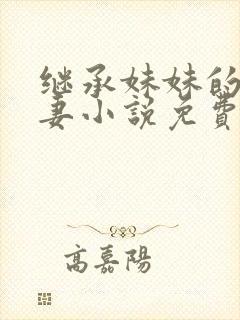 继承妹妹的
妻小説免費
高嘉陽